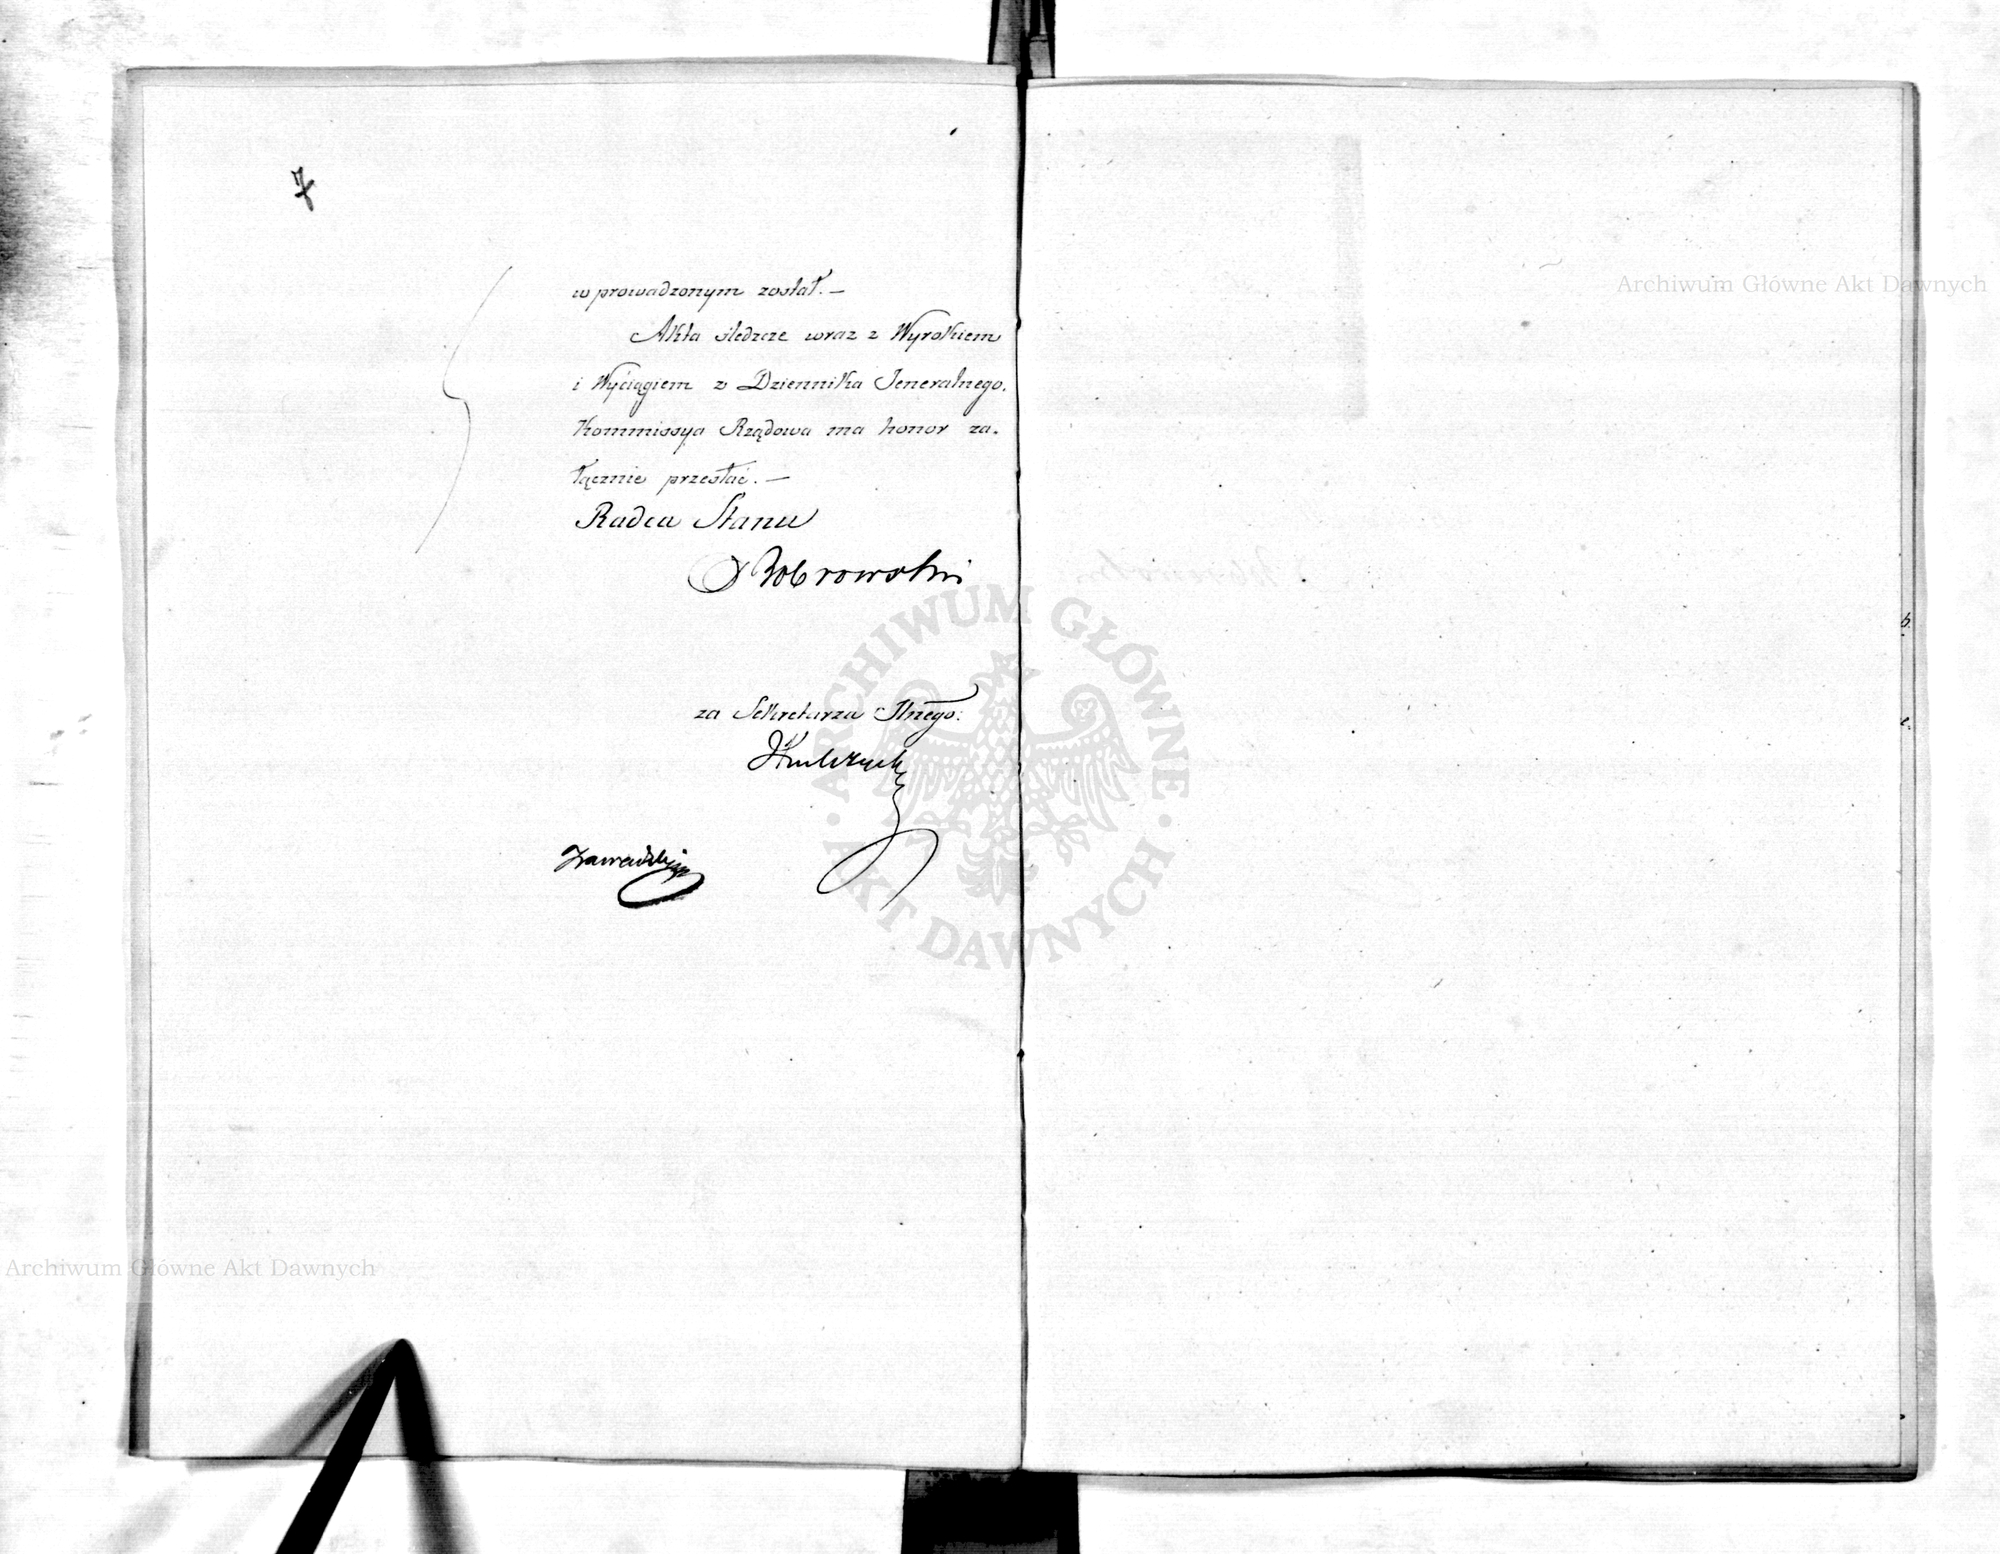 7
wprowadzonym został. —
Akta śledzcze wraz z Wyrokiem
i Wyciągiem z Dziennika Jeneralnego.
Kommissya Rządowa ma honor za-
łącznie przesłać. —
Radca Stanu
Bobrowski
za Sekretarza Jlnego:
Archiwum Główne Akt Dawnych
ARCHIWUM GŁÓWNE AKT DAWNYCH
Archiwum Główne Akt Dawnych